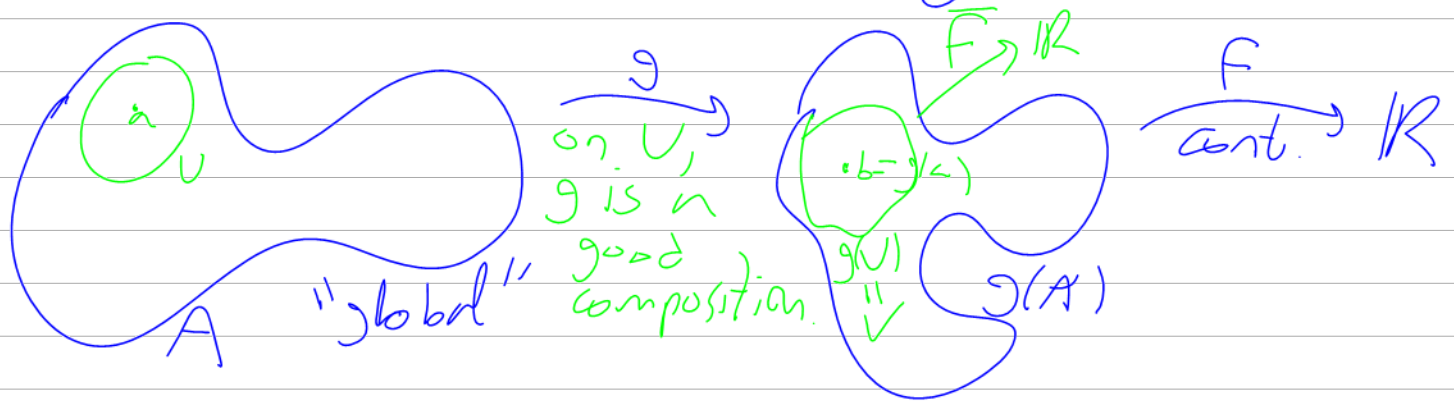 a
U
A
"global"
g
on U,
g is a
good
composition.
F̅
ℝ
b=g(a)
g(U)
"
V
g(A)
F
cont.
ℝ